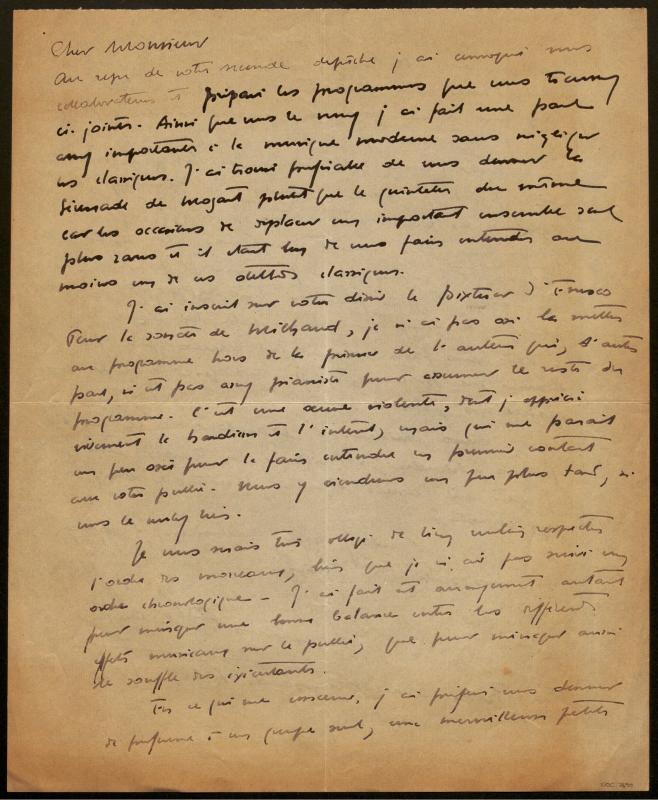 Cher Monsieur
Au reçu de votre seconde dépêche j'ai convoqué mes
collaborateurs et préparé les programmes que vous trouverez
ci-joints. Ainsi que vous le verrez j'ai fait une part
assez importante à la musique moderne sans négliger
les classiques. J'ai trouvé préférable de vous donner la
Sérénade de Mozart plutôt que le quintette du même
car les occasions de déplacer un important ensemble sont
plus rares et il était bon de vous faire entendre au
moins un de ces classiques.
J'ai inscrit sur votre désir le d'Enesco
Pour la sonate de , je n'ai pas osé la mettre
au programme hors de la présence de l'auteur qui, d'autre
part, n'est pas assez pianiste pour assumer le reste du
programme. C'est une œuvre violente, dont j'apprécie
vivement la hardiesse et l'intérêt, mais qui me paraît
un peu osée pour la faire entendre en premier contact
avec votre public. Nous y viendrons un peu plus tard, si
vous le voulez bien.
Je vous serais très obligé de bien vouloir respecter
l'ordre des morceaux, bien que je n'aie pas suivi un
ordre chronologique - J'ai fait cet arrangement autant
pour ménager une bonne balance entre les différents
effets musicaux sur le public, que pour ménager aussi
le souffle des exécutants.
En ce qui me concerne, j'ai préféré vous donner
de préférence à un groupe seul, une merveilleuse petite